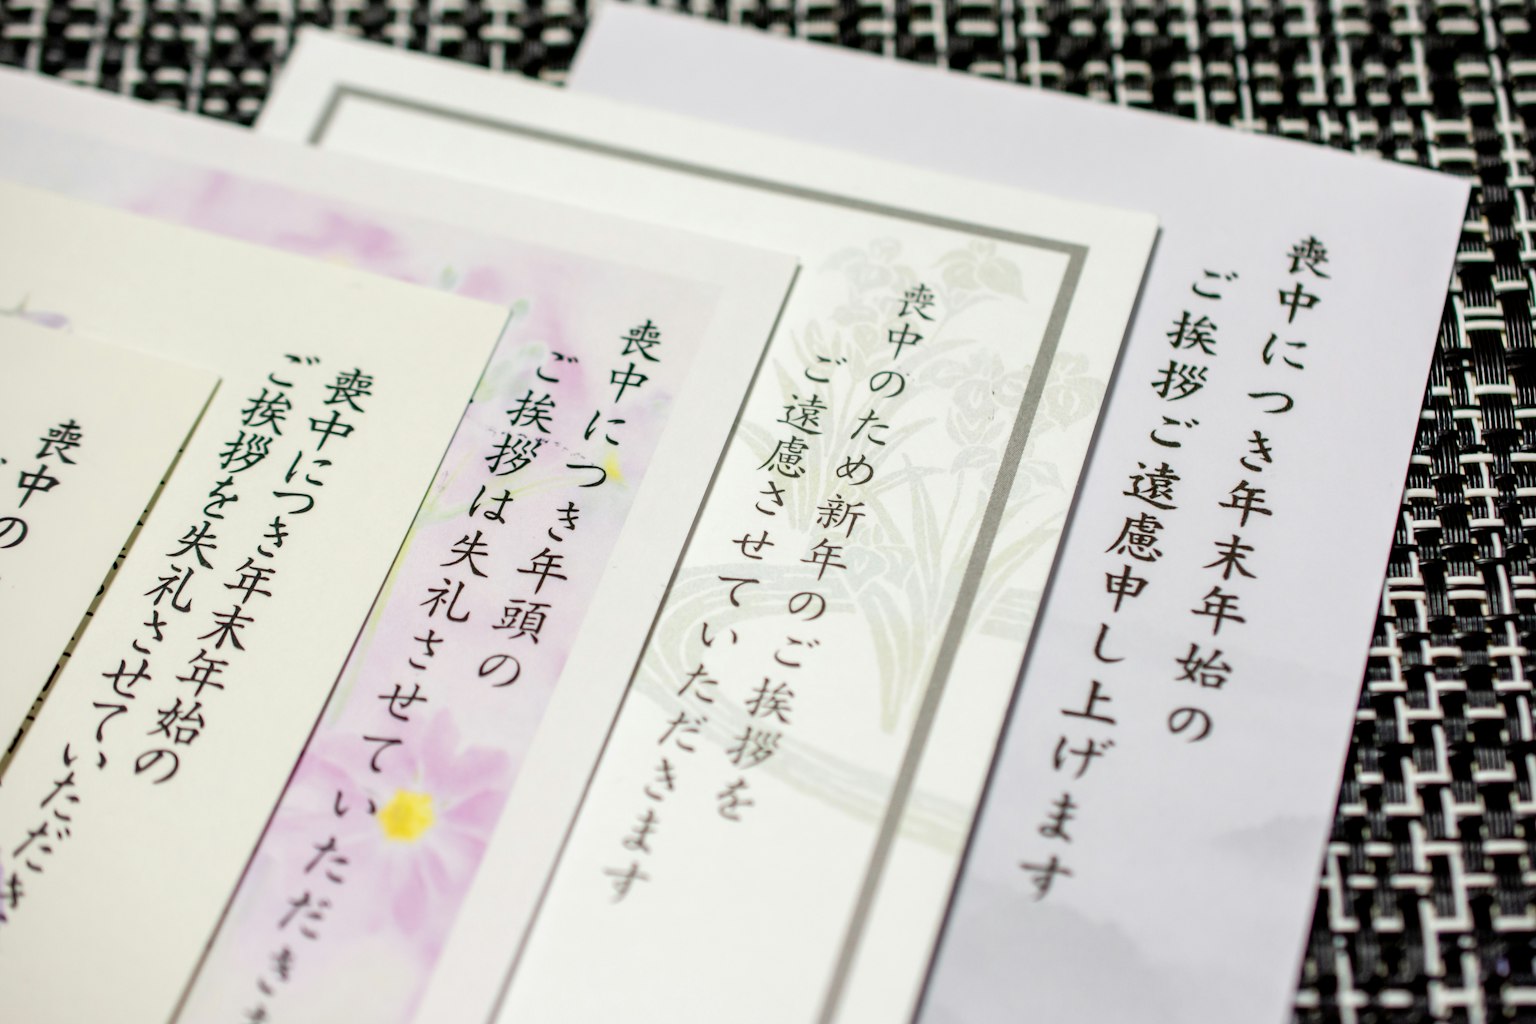 喪中につき年末年始の
ご挨拶ご遠慮申し上げます
喪中のため新年のご挨拶を
ご遠慮させていただきます
喪中につき年頭の
ご挨拶は失礼させていただきま
喪中につき年末年始の
ご挨拶を失礼させていただき
喪中の